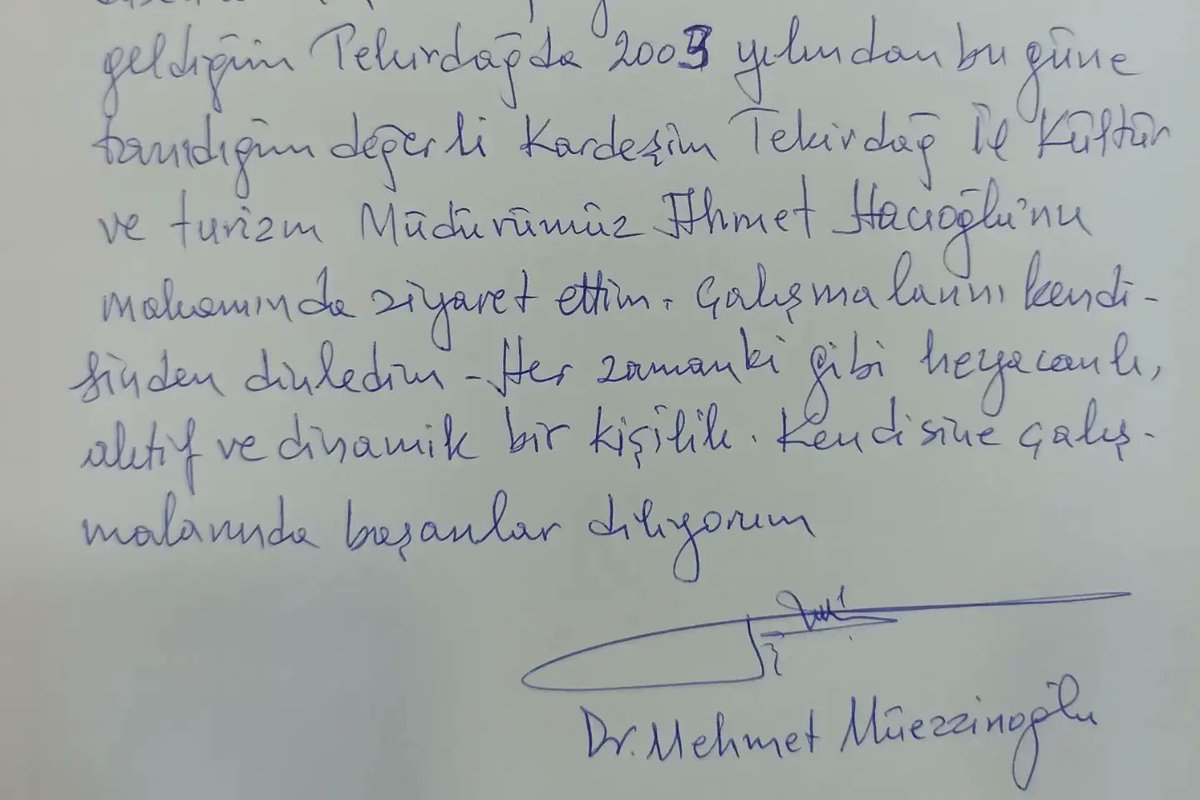 geldiğim Tekirdağda 2003 yılından bu güne
tanıdığım değerli Kardeşim Tekirdağ İl Kültür
ve turizm Müdürümüz Ahmet Hacıoğlu'nu
makamında ziyaret ettim. Çalışmalarını kendi-
sinden dinledim - Her zamanki gibi heyacanlı,
aktif ve dinamik bir kişilik. Kendisine çalış-
malarında başarılar diliyorum
Dr. Mehmet Müezzinoğlu